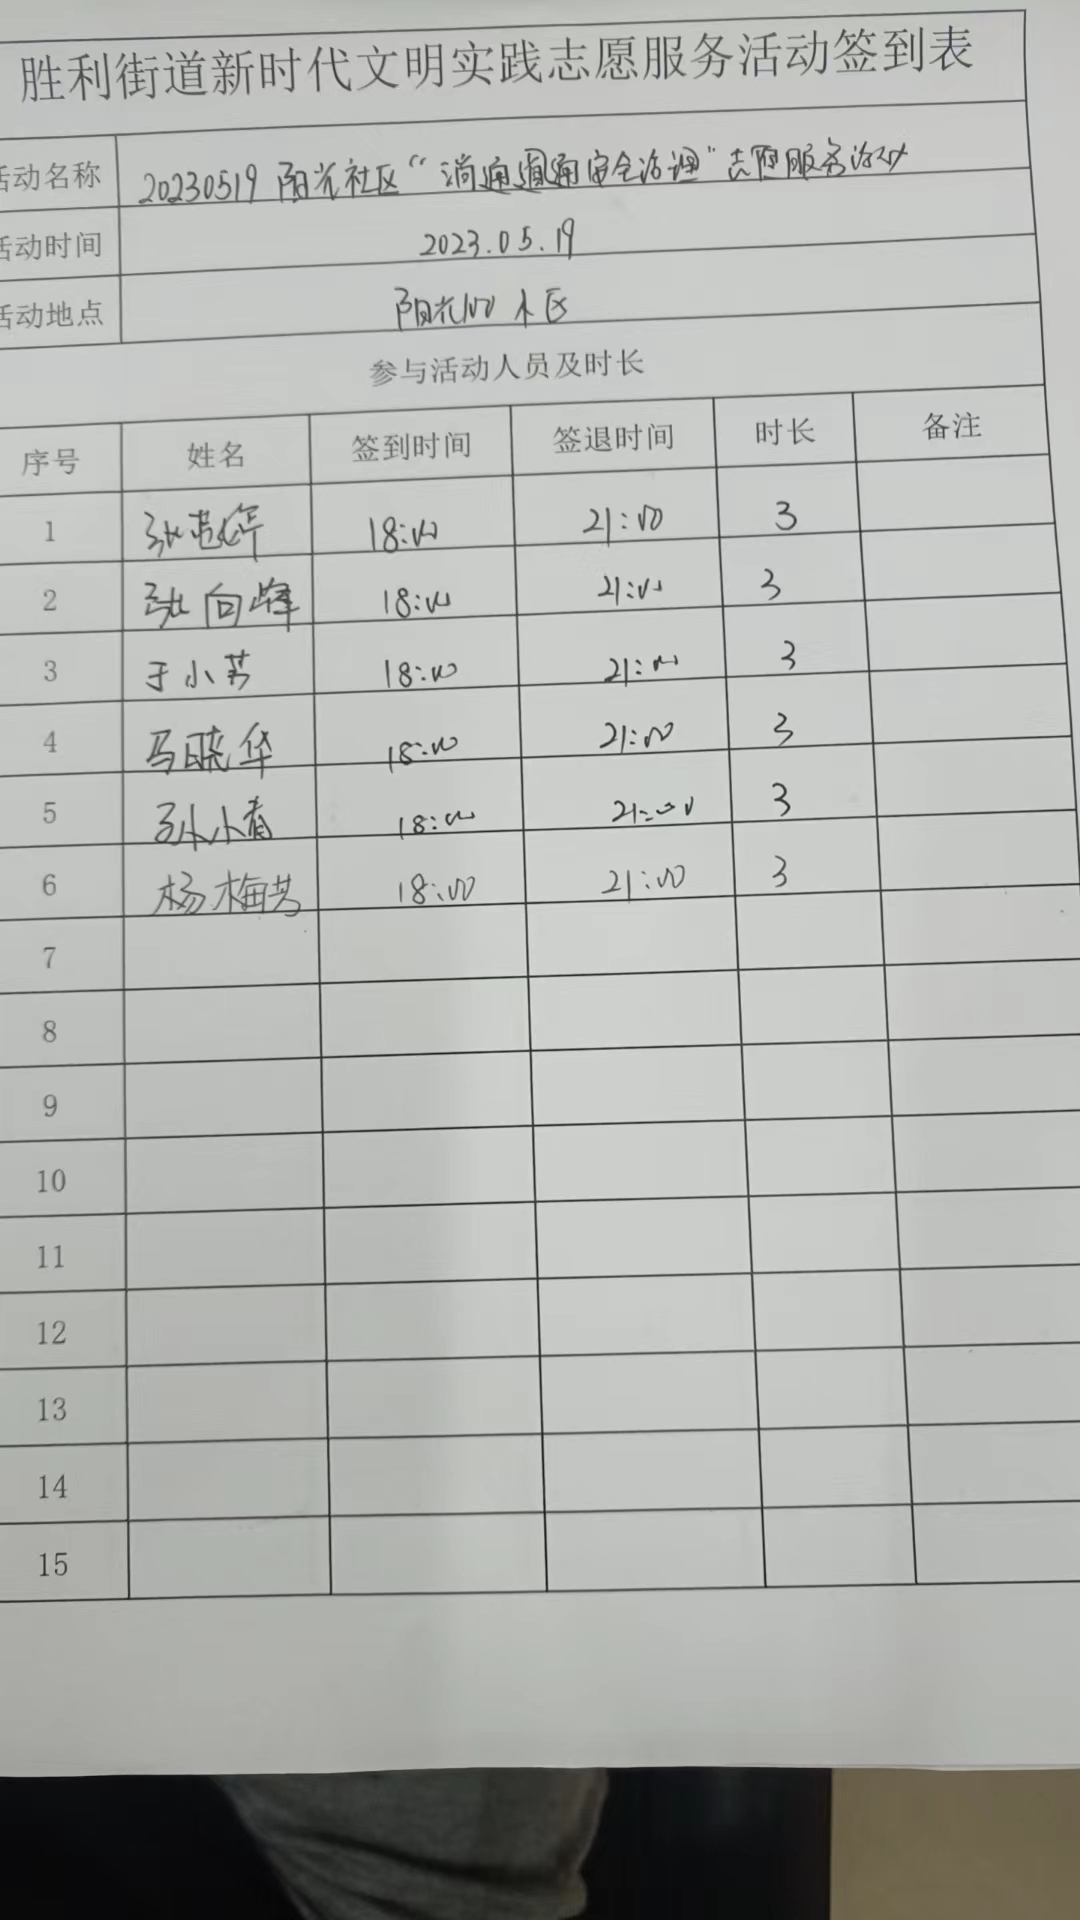 胜利街道新时代文明实践志愿服务活动签到表
活动名称 20230519 阳光社区“消通道通安全治理”志愿服务活动
活动时间 2023.05.19
活动地点 阳光100小区
参与活动人员及时长
序号 姓名 签到时间 签退时间 时长 备注
1 张 18:00 21:00 3
2 张向峰 18:00 21:00 3
3 于小芳 18:00 21:00 3
4 马晓华 18:00 21:00 3
5 孙小青 18:00 21:00 3
6 杨梅芳 18:00 21:00 3
7
8
9
10
11
12
13
14
15